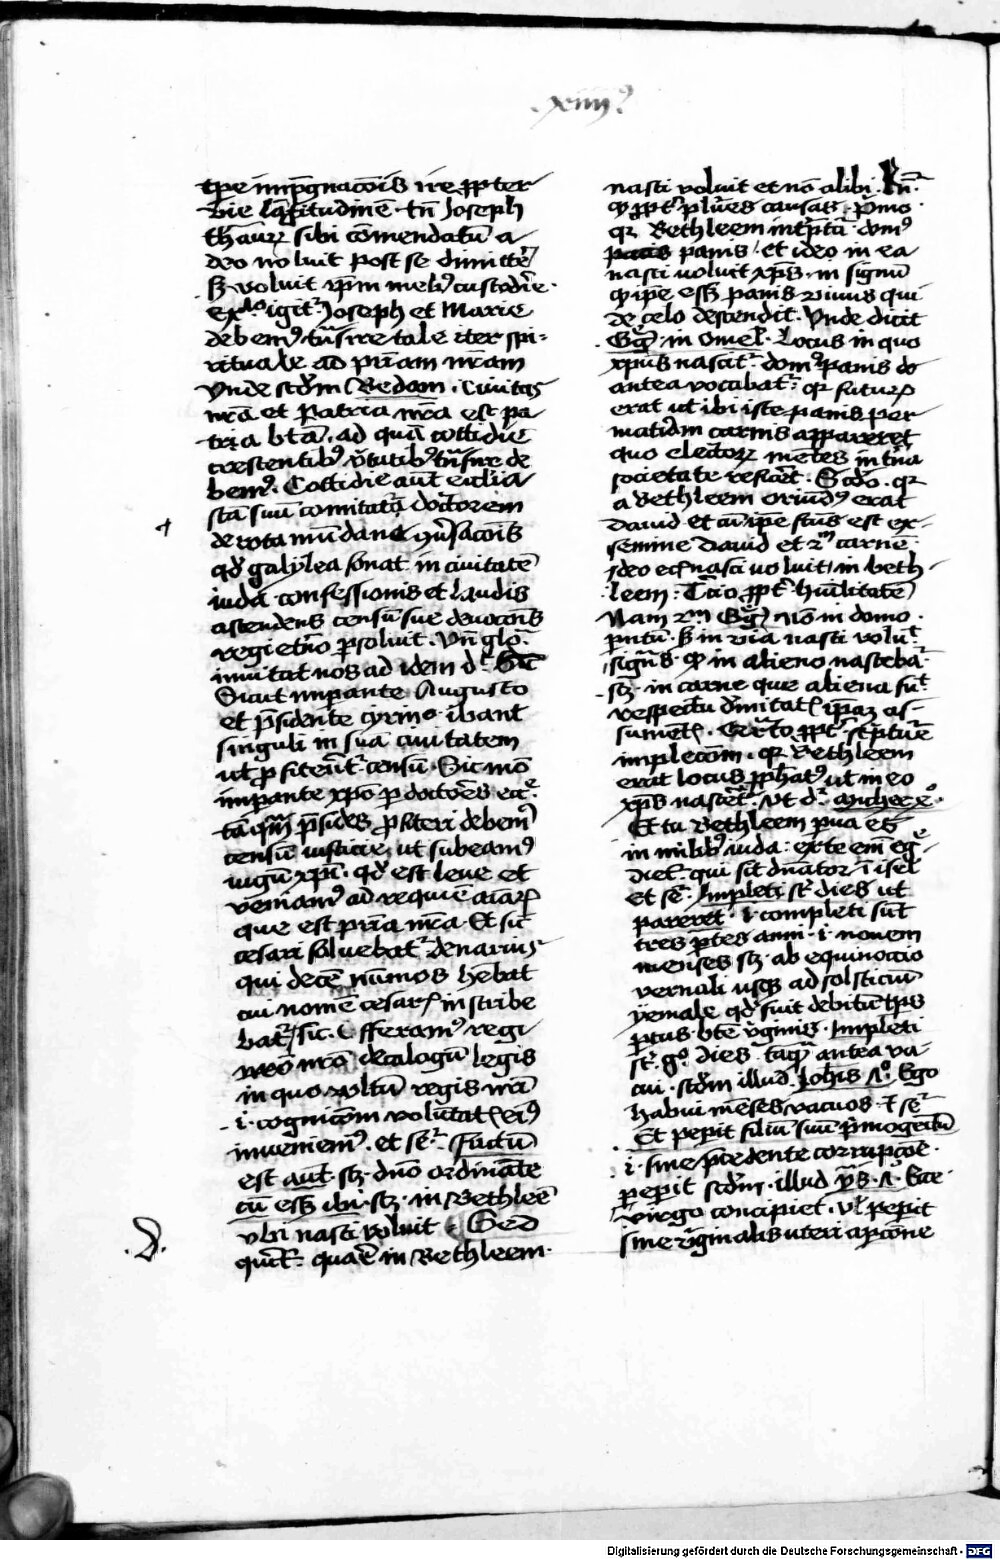 .xiiij⁹
tp̄e imp̄gnac̄ōis ire ꝓpter
vie lōgitudinē · tn̄ Joseph
thaurꝫ sibi cōmendatū a
deo noluit post se dimitte͛
sꝫ voluit ip̄m meli⁹ custodīre ·
Exͥlo igit̄ · Joseph et Marie
debem⁹ trāsire tale iter spi-
rituale ad pr̄iam nr̄am
Unde scd̄m Bedam · Civitas
nr̄a et Patria nr̄a est pa
tria bt̄a · ad quā cottidie
crescentib⁹ v̓tutib⁹ trāsire de
bem⁹ · Cottidie aūt eccl̄ia
sc̄a suū comitata doctorem
de rota mūdane ꝯv̓sac̄ōis
qd̓ galylea sonat in civitatē
iuda · confessionis et laudis
ascendens censū sue devoc̄ōnis
regi et̓no ꝑsoluit · Vn̄ glo ·
invitat nos ad idem d̄t Sic
Sicut imꝑante Augusto
et p̄sidente cyrino · ibant
singuli in suā civitatem
ut ꝓfiterēt̄ censū · Sic mō
imꝑante xp̄o ꝑ doctores ecc̄e
tāqm̄ p̄sides ꝓfiteri debem⁹
censū iusticie, ut subeam⁹
iugū xp̄i · qd̓ est leve et
veniam⁹ ad requiē aīarꝫ
que est pr̄ia nr̄a · Et sic̄
cesari soluebat̄ denarius
qui decē nūmos hēbat
cui nomē cesarꝭ inscribe
bat̄ / sic · Offeram⁹ regi
nr̄o decalogū legis
in quo vultū regis nr̄i
· i · cognic̄ōm volūtatꝭ ei⁹
inveniem⁹ · et se͛ · Factū
est aūt · scꝫ · dn̄o ordināte
cū essꝫ ibi · scꝫ · in Bethleē
vbi nasci voluit · Sed
querit̄ : quare in Bethleem ·
.D.
nasci voluit et nō alibi · Rn̄ ·
ꝙ ꝓpt̓ pl̄res causas · P̄mo ·
qꝛ Bethleem int̓p̄tat̄ dom⁹
panis · et ideo in ea
nasci voluit xp̄s · in signū
ꝙ ip̄e essꝫ panis vivus qui
de celo descendit · Vnde dicit
Greḡ · in Omel · Locus in quo
xp̄us nascit̄ · dom⁹ panis
antea vocabat̄ · qꝛ futurꝫ
erat ut ibi iste panis per
mat̓iam carnis appareret
quo electorꝫ mentes int̓na
societate reficeret · Scd̄o · qꝛ
a Bethleem oriund⁹ erat
david et cū ip̄e fcūs est ex
semine David et 2m̄ carnē ·
ideo ecia nasci voluit in beth
leem : Tercio ꝓpt̓ hūilitatē
Nam 2m̄ Greḡ nō in domo ·
parentū sꝫ in via nasci voluit
signās · ꝙ in alieno nascebat̄
scꝫ · in carne que aliena fuit
respectu divinitatꝭ ip̄am as-
sumentꝭ · Quarto ꝓpt̓ scripturē
implecōm · qꝛ Bethleem
erat locus ꝓphetat⁹ ut in eo
xp̄s nascet̄ · Ut d̄r · Michee v̊ ·
Et tu Bethleem parva es
in milib⁹ iuda : ex te em̄ eg-
diet̄ · qui sit dn̄ator ī isrl̄
et se͛ · Impleti st̄ dies ut
pareret · i · completi sūt
tres p̄tes anni · i · novem
menses scꝫ · ab equinoccio
vernali usqꝫ ad solsticiū
yemale qd̓ fuit debitū tp̄s
ꝑtus · bt̄e virginis · Impleti
st̄ g̊ · dies · tāqꝫ antea va
cui · scd̄m illud · Johis · Ego
habui menses vacuos · ⁊ se͛
Et peꝑit filiū suū p̄mogenitū
· i · sine p̄cedente corrupc̄ōe ·
peperit scd̄m · illud ys · Ecce
virgo concipiet · vl̓ peꝑit
sine v̓ginalis uteri apercōne